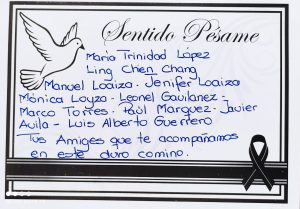 Sentido Pésame
Maria Trinidad López
Ling Chien Chang
Manuel Loaiza. Jenifer Loaiza
Mónica Loyza. Leonel Gavilanez.
Marco Torres. Paúl Marquez. Javier
Avila - Luis Alberto Guerrero
Tus Amigos que te acompañamos
en este duro camino.